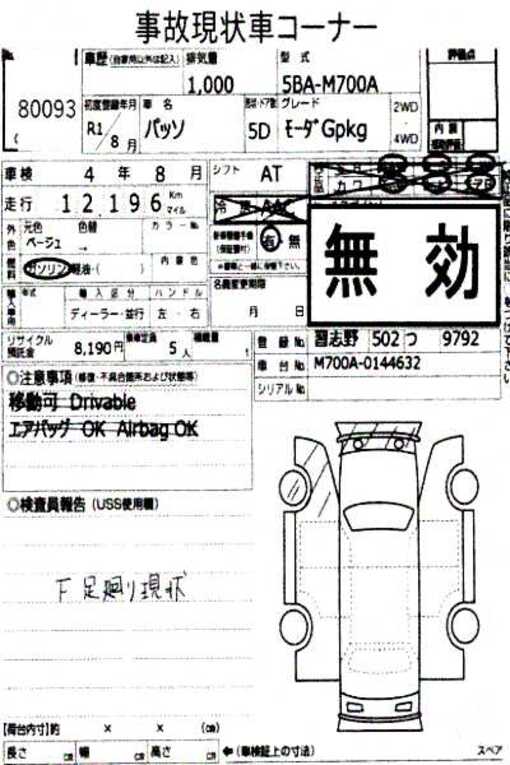 事故現状車コーナー
車歴 (自家用以外は記入) 排気量 型式 評価点
80093 1,000 5BA-M700A
初度登録年月 車名 形状・ドア数 グレード 2WD
R1/8月 パッソ 5D モーダGpkg 4WD
内装
車検 4年8月 シフト AT
走行 12,196 Km マイル 冷房 AAC
外色 元色 色替 カラーNo.
ベージュ → 有 無
燃料 ガソリン・軽油・( ) 内装色
無効
輸入車用 年式 輸入区分 ハンドル 名義変更期限
ディーラー・並行 左・右 月 日
リサイクル預託金 8,190円 乗車定員 5人 積載量 t
登録No. 習志野 502 つ 9792
車台No. M700A-0144632
シリアルNo.
◎注意事項 (修復・不具合箇所および状態等)
移動可 Drivable
エアバッグ OK Airbag OK
◎検査員報告 (USS使用欄)
下足廻り現状
【荷台内寸】約 × × (cm)
長さ cm 幅 cm 高さ cm ←(車検証上の寸法) スペア